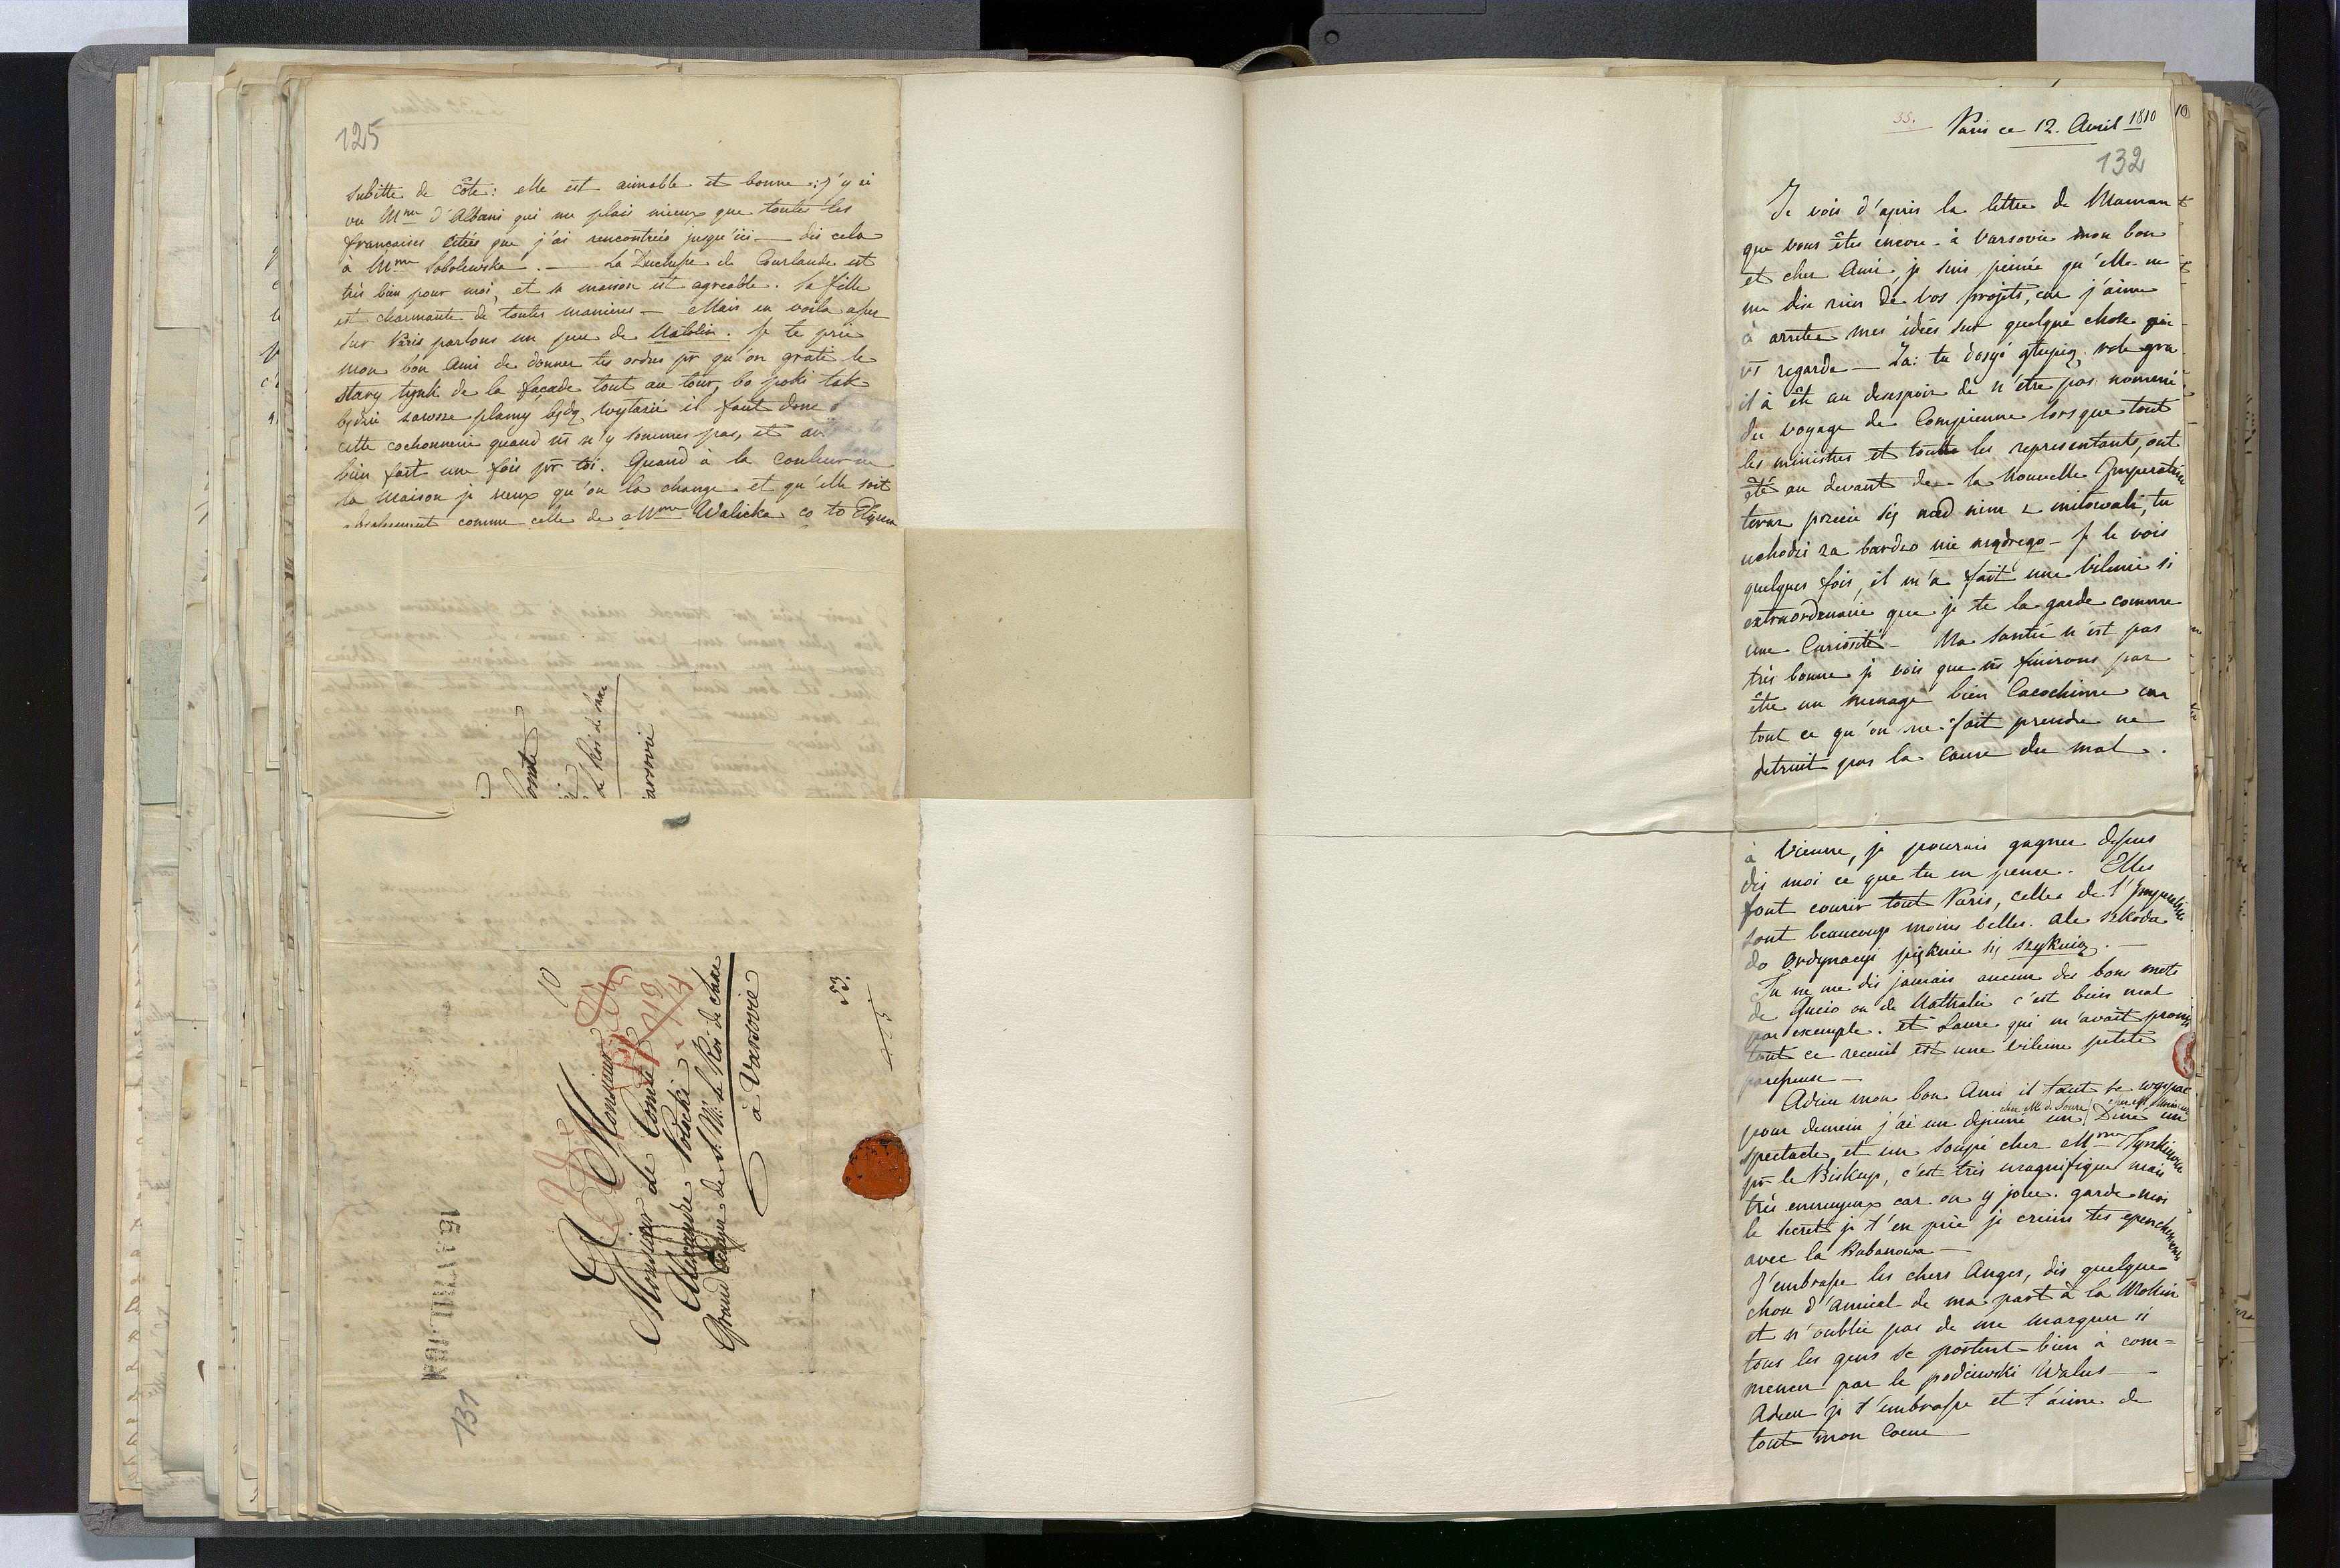 125
subitte de côte: elle est aimable et bonne: j'y ai
vu Mme d'Albani qui me plais mieux que toutes les
francaises titrés que j'ai rencontrées jusqu'ici — dis cela
à Mme Sobolewska. — La Duchesse de Courlande est
très bien pour moi, et sa maison est agreable. Sa fille
est charmante de toutes manieres — Mais en voila assez
sur Paris parlons un peu de Natolin. Je te prie
mon bon Ami de donner tes ordres pr qu'on grate le
stary tynk de la façade tout au tour, bo poki tak
będzie zawsze plamy będą wytazić il faut donc
cette cochonnerie quand ns n'y sommes pas, et
bien fait une fois pr toi. Quand à la couleur
la Maison je veux qu'on la change et qu'elle soit
absolument comme celle de Mme Walicka co to
10
A Monsieur
Monsieur le Comte
Alexandre Potocki
Grand Ecuyer de S. M. le Roi de Saxe
à Varsovie
53.
131
33.
Paris ce 12. Avril 1810
10
132
Je vois d'apris la lettre de Maman
que vous êtes encore à Varsovie mon bon
et cher Ami, je suis peinée qu'elle ne
me dise rien de vos projets, car j'aime
à arreter mes idées sur quelque chose qui
vs regarde — Za: tu dosyć głupią role gra
il à été au desespoir de n'etre pas nommé
du voyage de Compienne lorsque tout
les ministres et toutes les representants, ont
été au devant de la nouvelle Imperatrice
teraz przecie się nad nim zmitowali, tu
uchodzi za bardzo nie mądrego — Je le vois
quelques fois, il m'a fait une vilenie si
extraordenaire que je te la garde comme
une Curiosité — Ma santée n'est pas
très bonne je vois que ns finirons par
être un menage bien Cacochime car
tout ce qu'on me fait prendre ne
detruit pas la cause du mal.
à Vienne, je pourais gagner dessus
dis moi ce que tu en pense. Elles
font courir tout Paris, celles de l'Imperatrice
sont beaucoup moins belles. ale szkoda
do Ordynacyi pięknie się szykuią. —
Tu ne me dis jamais aucun des bons mots
de Gucio ou de Nathalie c'est bien mal
par exemple. et Laure qui m'avait promis
tout ce receuil est une vilaine petite
paresseuse —
Adieu mon bon Ami il faut se wyspac
pour demain j'ai un dejeuné un Diné un
spectacle, et un soupé chez Mme Tyszkiewi
pr le Biskup, c'est très magnifique mais
très ennuyeux car on y joue. garde moi
le secret je t'en prie je crains tes epenchemens
avec la Kabanowa —
J'embrasse les chers Anges, dis quelque
chose d'amical de ma part à la Mokin
et n'oublie pas de me marquer si
tous les gens se portent bien à com=
mencer par le podciwski Walus —
Adieu je t'embrasse et t'aime de
tout mon Coeur —